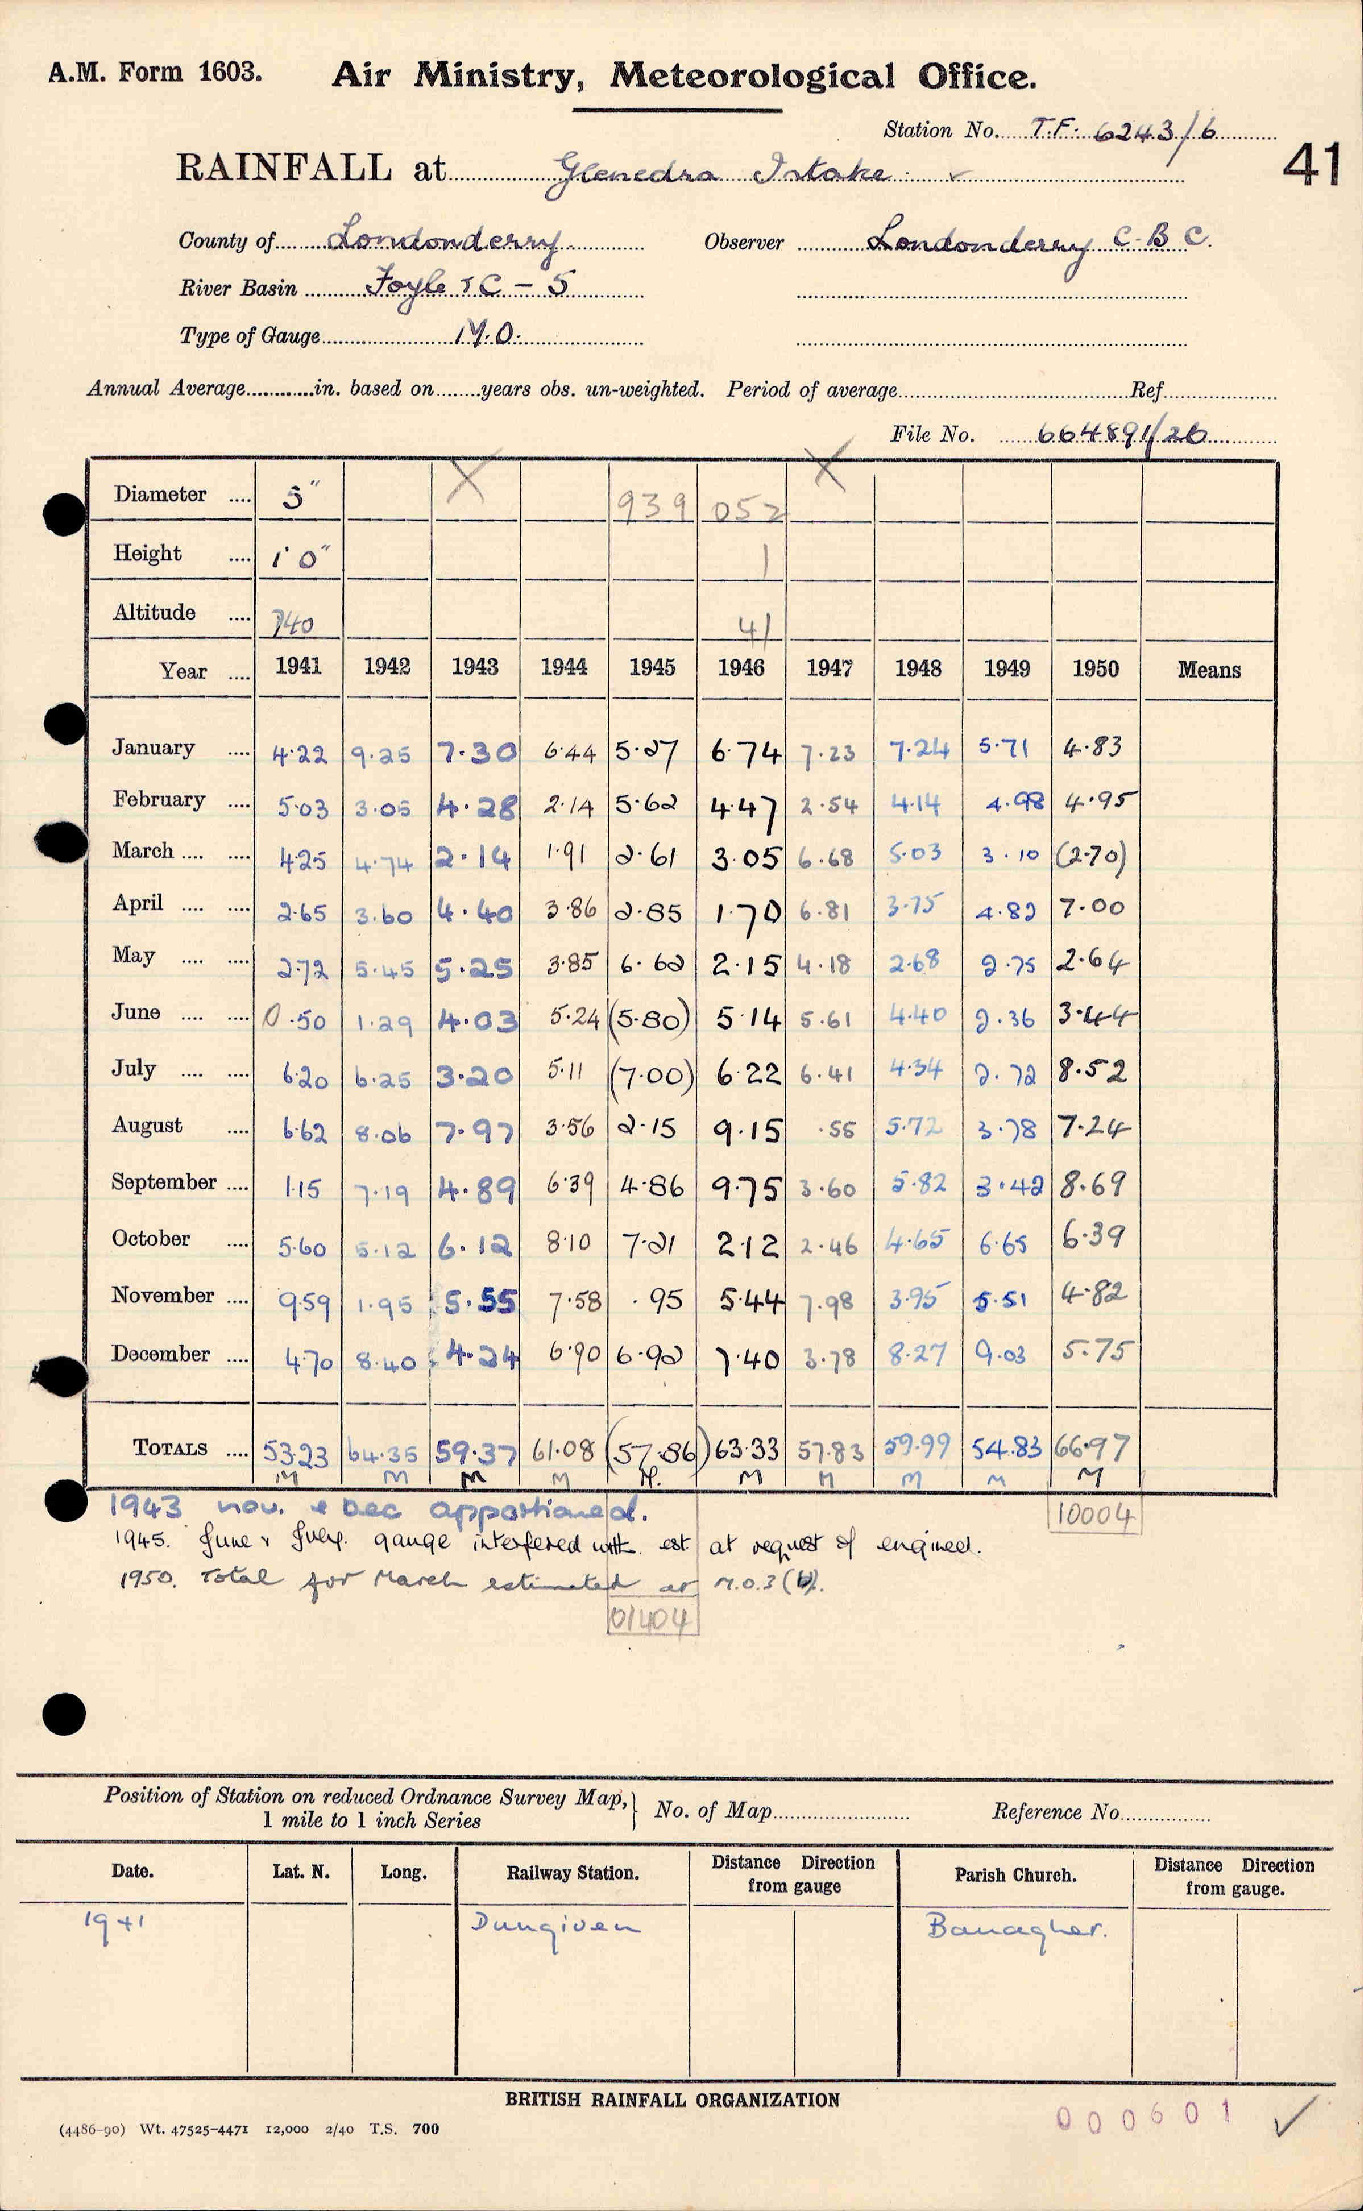 A.M. Form 1603. Air Ministry, Meteorological Office.
Station No. T.F. 6243/6
41
RAINFALL at Glenedra Intake
County of Londonderry Observer Londonderry C.B.C.
River Basin Foyle & C - 5
Type of Gauge M.O.
Annual Average in. based on years obs. un-weighted. Period of average Ref
File No. 664891/26
Diameter 5" 939 052
Height 1'0" 1
Altitude 740 41
Year 1941 1942 1943 1944 1945 1946 1947 1948 1949 1950 Means
January 4.22 9.25 7.30 6.44 5.27 6.74 7.23 7.24 5.71 4.83
February 5.03 3.05 4.28 2.14 5.62 4.47 2.54 4.14 4.98 4.95
March 4.25 4.74 2.14 1.91 2.61 3.05 6.68 5.03 3.10 (2.70)
April 2.65 3.60 4.40 3.86 2.85 1.70 6.81 3.75 4.82 7.00
May 2.72 5.45 5.25 3.85 6.62 2.15 4.18 2.68 2.75 2.64
June 0.50 1.29 4.03 5.24 (5.80) 5.14 5.61 4.40 2.36 3.44
July 6.20 6.25 3.20 5.11 (7.00) 6.22 6.41 4.34 2.72 8.52
August 6.62 8.06 7.97 3.56 2.15 9.15 .55 5.72 3.78 7.24
September 1.15 7.19 4.89 6.39 4.86 9.75 3.60 5.82 3.42 8.69
October 5.60 5.12 6.12 8.10 7.21 2.12 2.46 4.65 6.65 6.39
November 9.59 1.95 5.55 7.58 .95 5.44 7.98 3.95 5.51 4.82
December 4.70 8.40 4.24 6.90 6.92 7.40 3.78 8.27 9.03 5.75
TOTALS 53.23 64.35 59.37 61.08 (57.86) 63.33 57.83 59.99 54.83 66.97
M M M M M. M M M M M
1943 nov. & Dec apportioned. 10004
1945. June & July. gauge interfered with est at request of engineer.
1950. Total for March estimated at M.O.3(b).
01404
Position of Station on reduced Ordnance Survey Map, 1 mile to 1 inch Series No. of Map Reference No
Date. Lat. N. Long. Railway Station. Distance Direction from gauge Parish Church. Distance Direction from gauge.
1941 Dungiven Banagher.
BRITISH RAINFALL ORGANIZATION
000601
(4486-90) Wt. 47525-4471 12,000 2/40 T.S. 700